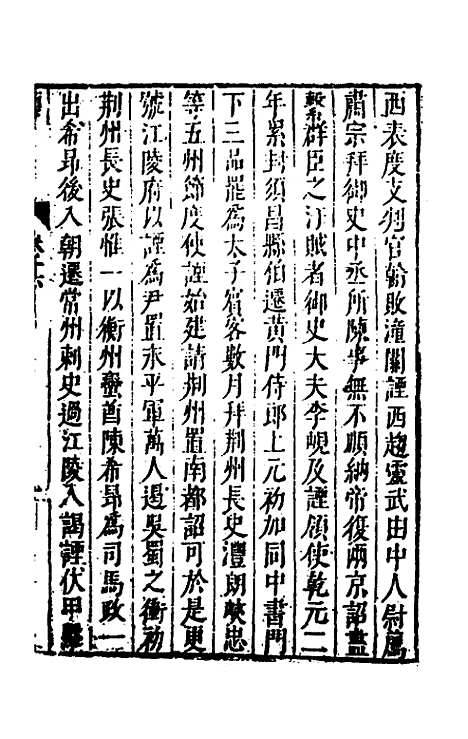 西表度支判官翰敗潼關諲西趨靈武由中人尉薦
肅宗拜御史中丞所陳事無不順納帝復兩京詔盡
繫群臣之汙賊者御史大夫李峴及諲領使乾元二
年累封須昌縣伯遷黃門侍郎上元初加同中書門
下三品罷爲太子賓客數月拜荆州長史澧朗峽忠
等五州節度使諲始建請荆州置南都詔可於是更
號江陵府以諲爲尹置永平軍萬人遏吳蜀之衝初
荆州長史張惟一以衡州蠻酋陳希昂爲司馬政一
出希昂後入朝遷常州刺史過江陵入謁諲伏甲